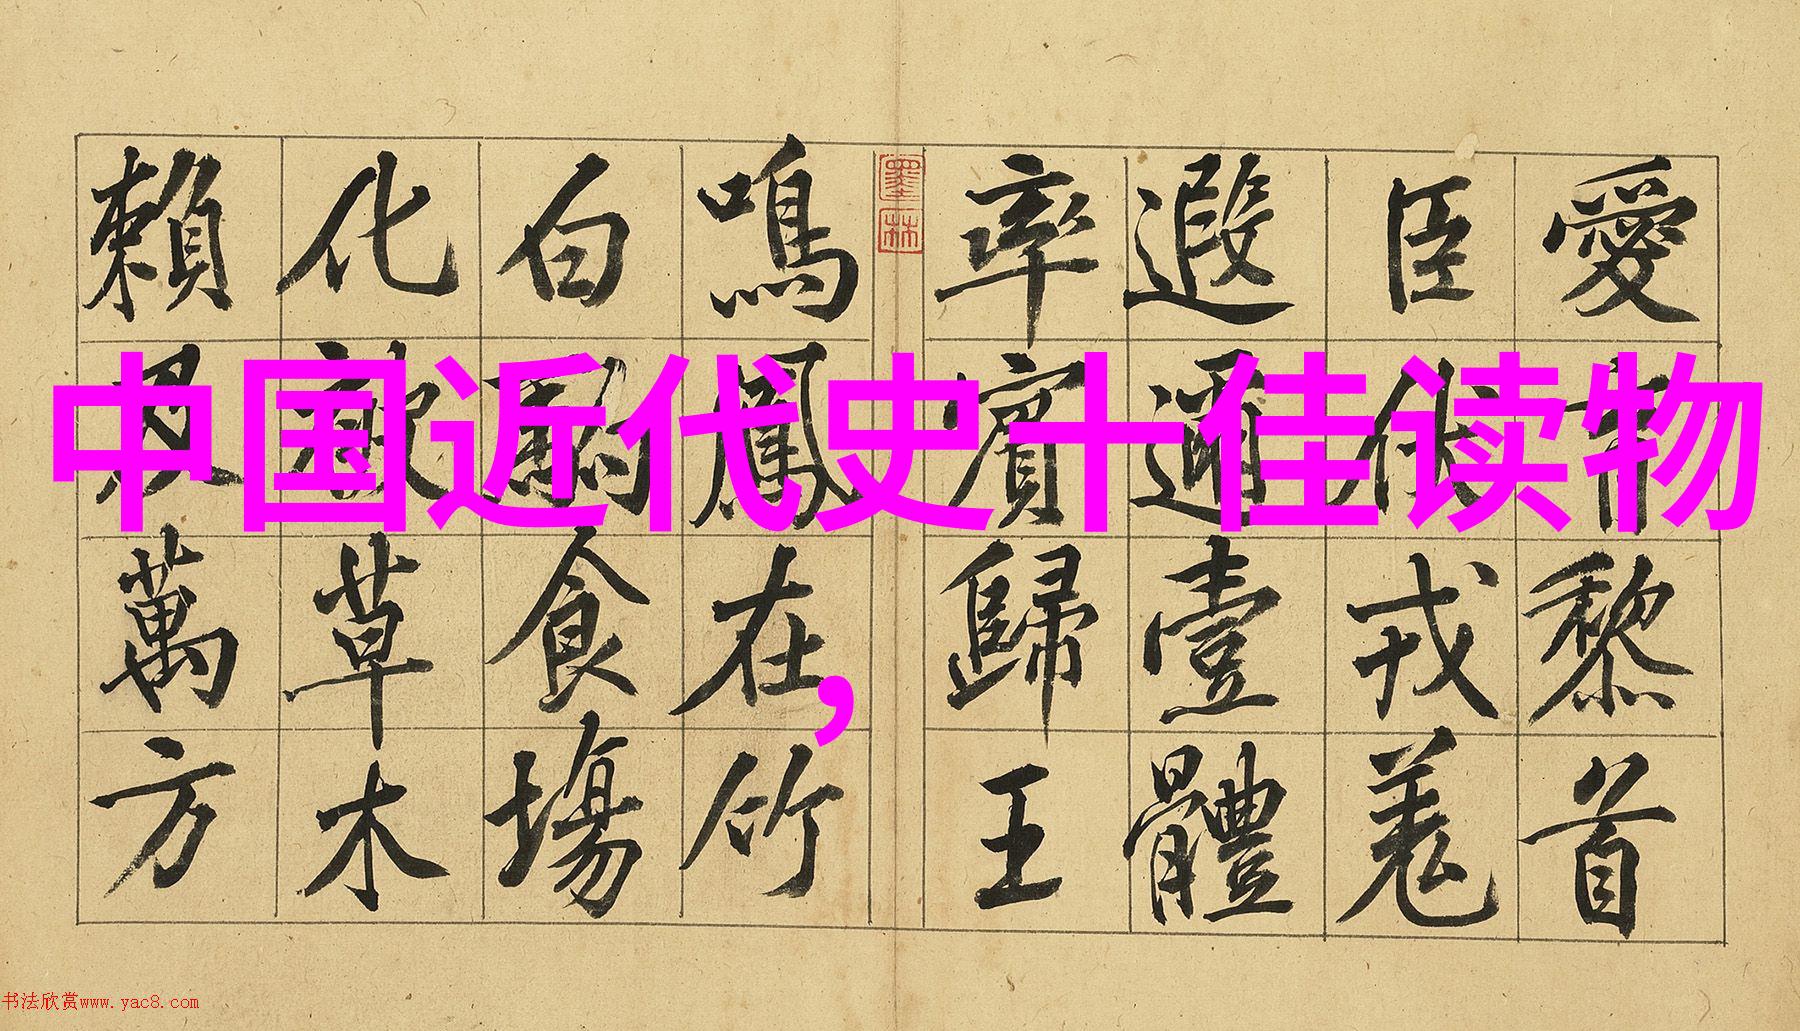 中国近代史十佳读物
，
愛育黎首
臣伏戎羌
遐邇壹體
率賓歸王
墨林
鳴鳳在竹
白駒食場
化被草木
賴及萬方
书法欣赏www.yac8.com